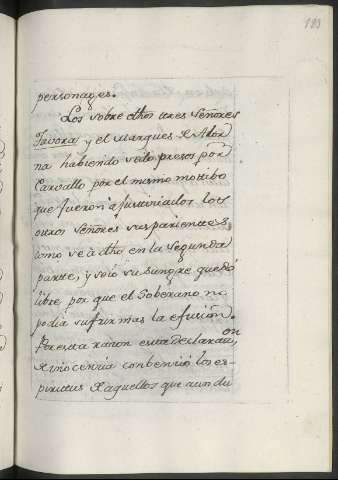 183
personages.
Los sobre dhos tres Señores
Tavoras y el Marques de Alor
na habiendo sido presos por
Carvallo por el mismo motibo
que fueron ajusticiados los
otros Señores sus parientes,
como se á dho en la Segunda
partte, y solo su sangre quedó
libre por que el Soberano no
podia sufrir mas la efusión.
Por esta razon esta declaracion
de inocencia conbenció los es-
piritus de aquellos que aun du